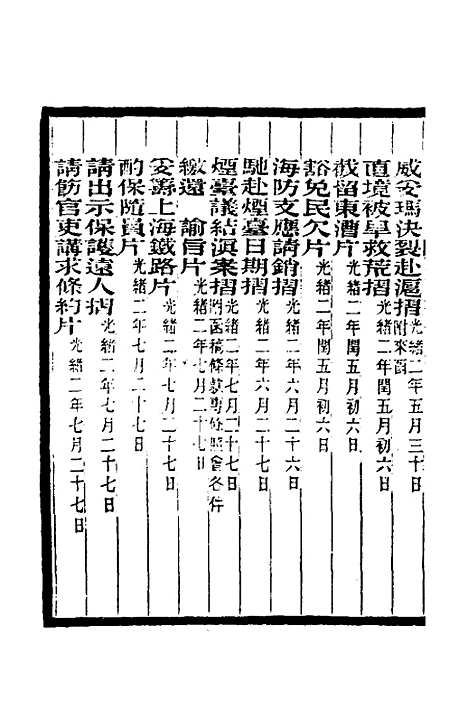 威妥瑪決裂赴滬摺附來函光緒二年五月三十日
直境被旱救荒摺光緒二年閏五月初六日
截留東漕片光緒二年閏五月初六日
豁免民欠片光緒二年閏五月初六日
海防支應請銷摺光緒二年六月二十六日
馳赴煙臺日期摺光緒二年六月二十七日
煙臺議結滇案摺光緒二年七月二十七日附函稿條款專條照會各件
繳還 諭旨片光緒二年七月二十七日
妥籌上海鐵路片光緒二年七月二十七日
酌保隨員片光緒二年七月二十七日
請出示保護遠人摺光緒二年七月二十七日
請飭官吏講求條約片光緒二年七月二十七日